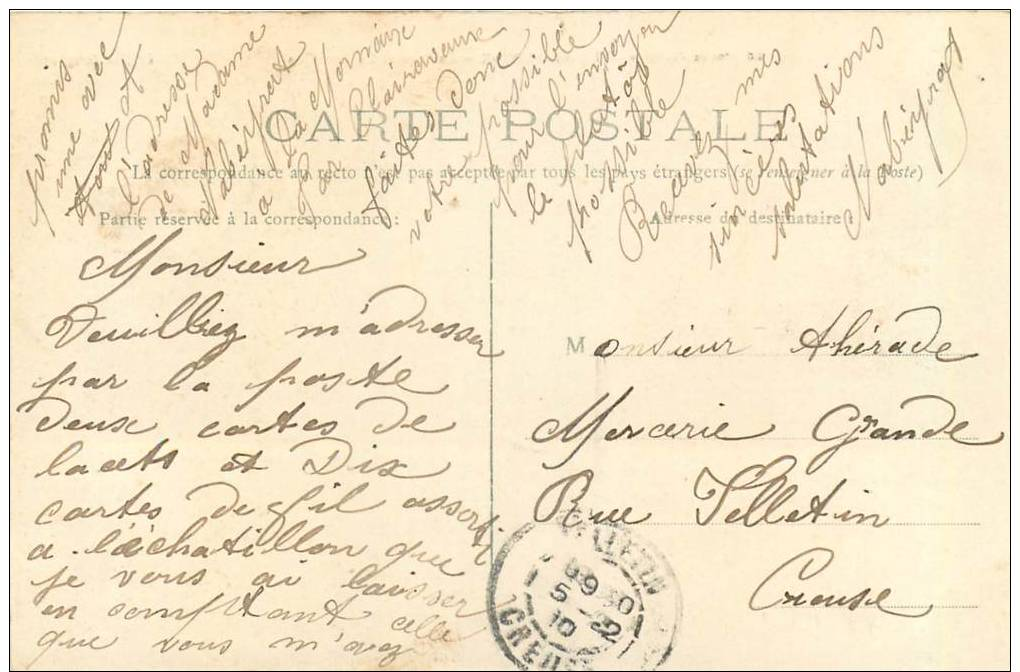 CARTE POSTALE
La correspondance au recto n'est pas acceptée par tous les pays étrangers (se renseigner à la Poste)
Partie réservée à la correspondance:
Adresse du destinataire:
Monsieur
Veuillez m'adresser
par la poste
deux cartes de
lacets et Dix
cartes de fil assorti
a l'échatillon que
je vous ai laisser
en comptant celle
que vous m'avez
promis
ume avec
tout et
l'adresse
de Madame
Nabééprat
a La Mornaix
par Clairavaux
faites donc
votre possible
pour l'envoyer
le plus tôt
possible
Recevez mes
sincères
salutations
Monsieur Ahérade
Mercerie Grande
Rue Felletin
Creuse
FELLETIN
9 30
5 - 2
10
CREUSE